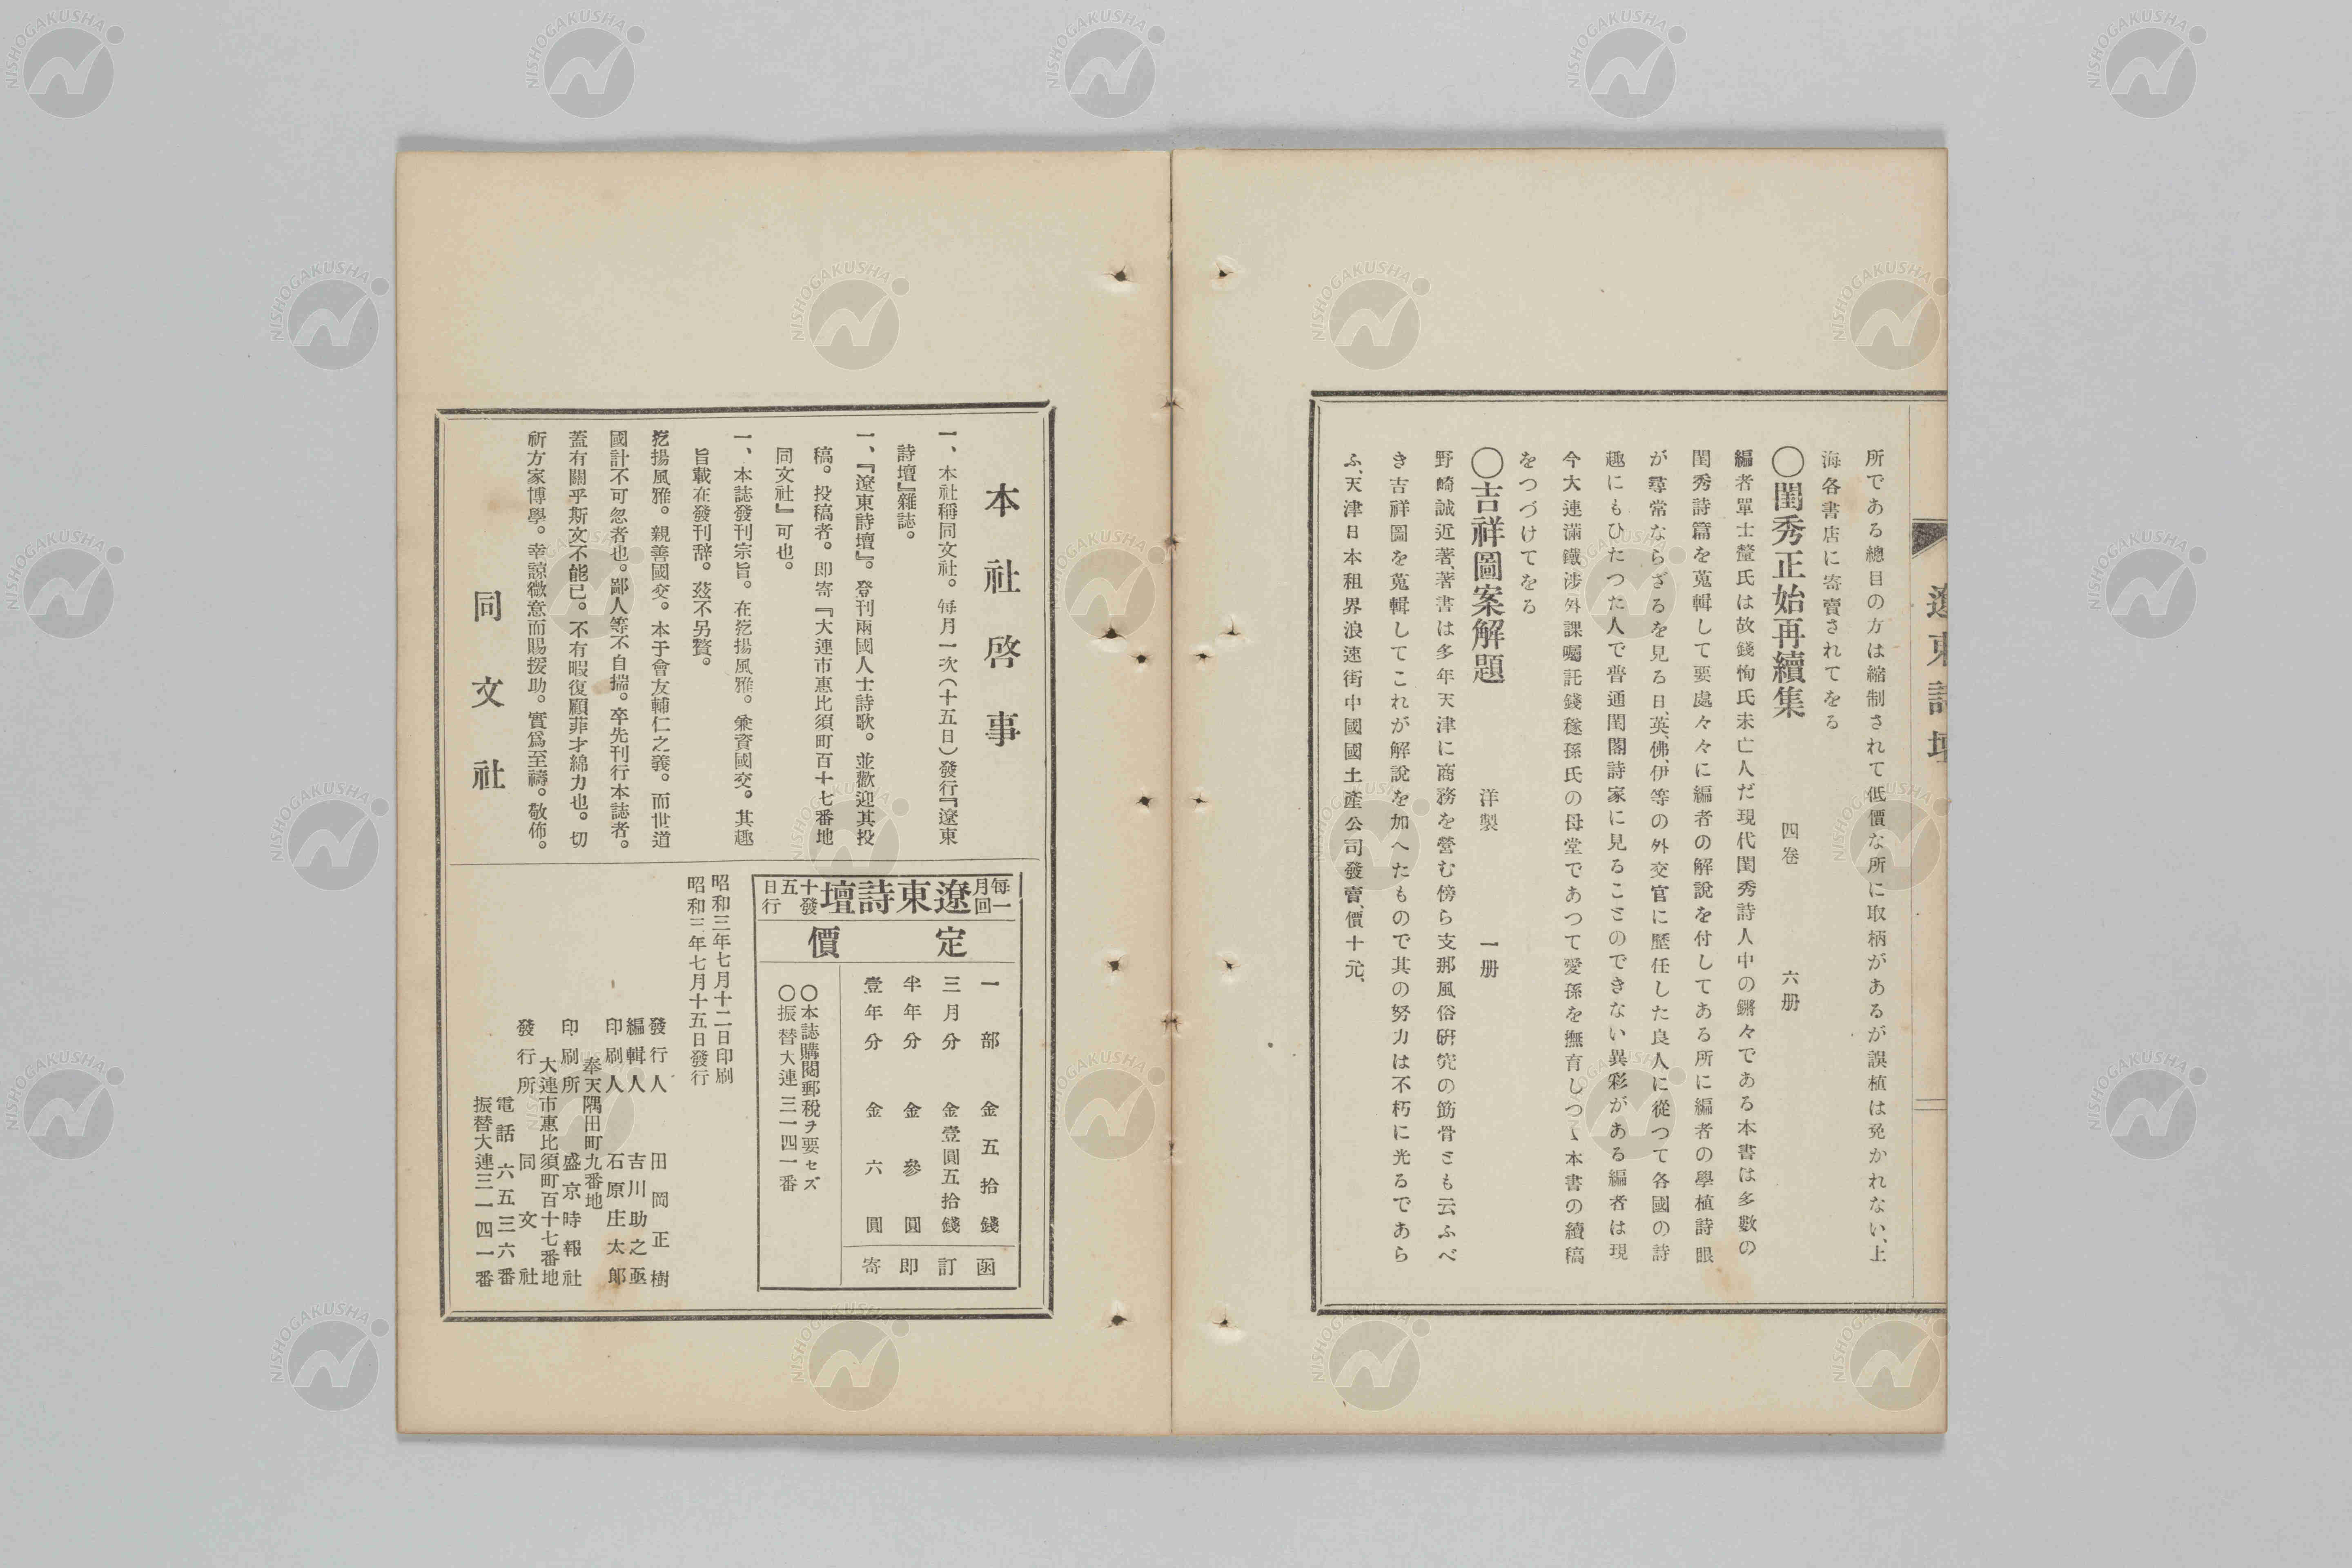 遼東詩壇
所である總目の方は縮制されて低價な所に取柄があるが誤植は免かれない、上
海各書店に寄賣されてをる
〇閨秀正始再續集 四卷 六册
編者單士釐氏は故錢恂氏未亡人だ現代閨秀詩人中の鏘々である本書は多數の
閨秀詩篇を蒐輯して要處々々に編者の解說を付してある所に編者の學植詩眼
が尋常ならざるを見る日、英、佛、伊等の外交官に歷任した良人に從つて各國の詩
趣にもひたつた人で普通閨閣詩家に見ることのできない異彩がある編者は現
今大連滿鐵涉外課囑託錢稻孫氏の母堂であつて愛孫を撫育しつゝ本書の續稿
をつづけてをる
〇吉祥圖案解題 洋製 一册
野崎誠近著、著書は多年天津に商務を營む傍ら支那風俗硏究の筋骨とも云ふべ
き吉祥圖を蒐輯してこれが解說を加へたもので其の努力は不朽に光るであら
ふ、天津日本租界浪速街中國國土產公司發賣、價十元、
本社啓事
一、本社稱同文社。每月一次（十五日）發行『遼東
詩壇』雜誌。
一、『遼東詩壇』。登刊兩國人士詩歌。並歡迎其投
稿。投稿者。卽寄『大連市惠比須町百十七番地
同文社』可也。
一、本誌發刊宗旨。在扢揚風雅。兼資國交。其趣
旨載在發刊辞。茲不另贅。
扢揚風雅。親善國交。本于會友輔仁之義。而世道
國計不可忽者也。鄙人等不自揣。卒先刊行本誌者。
蓋有關乎斯文不能已。不有暇復顧菲才綿力也。切
祈方家博學。幸諒微意而賜援助。實爲至禱。敬佈。
同文社
每月一回 遼東詩壇 十五日發行
定價
一部 金五拾錢 函
三月分 金壹圓五拾錢 訂
半年分 金參圓 卽
壹年分 金六圓 寄
〇本誌購閱郵稅ヲ要セズ
〇振替大連三一四一番
昭和三年七月十二日印刷
昭和三年七月十五日發行
發行人 田岡正樹
編輯人 吉川助之亟
印刷人 石原庄太郞
奉天隅田町九番地
印刷所 盛京時報社
大連市惠比須町百十七番地
發行所 同文社
電話六五三六番
振替大連三一四一番
NISHOGAKUSHA